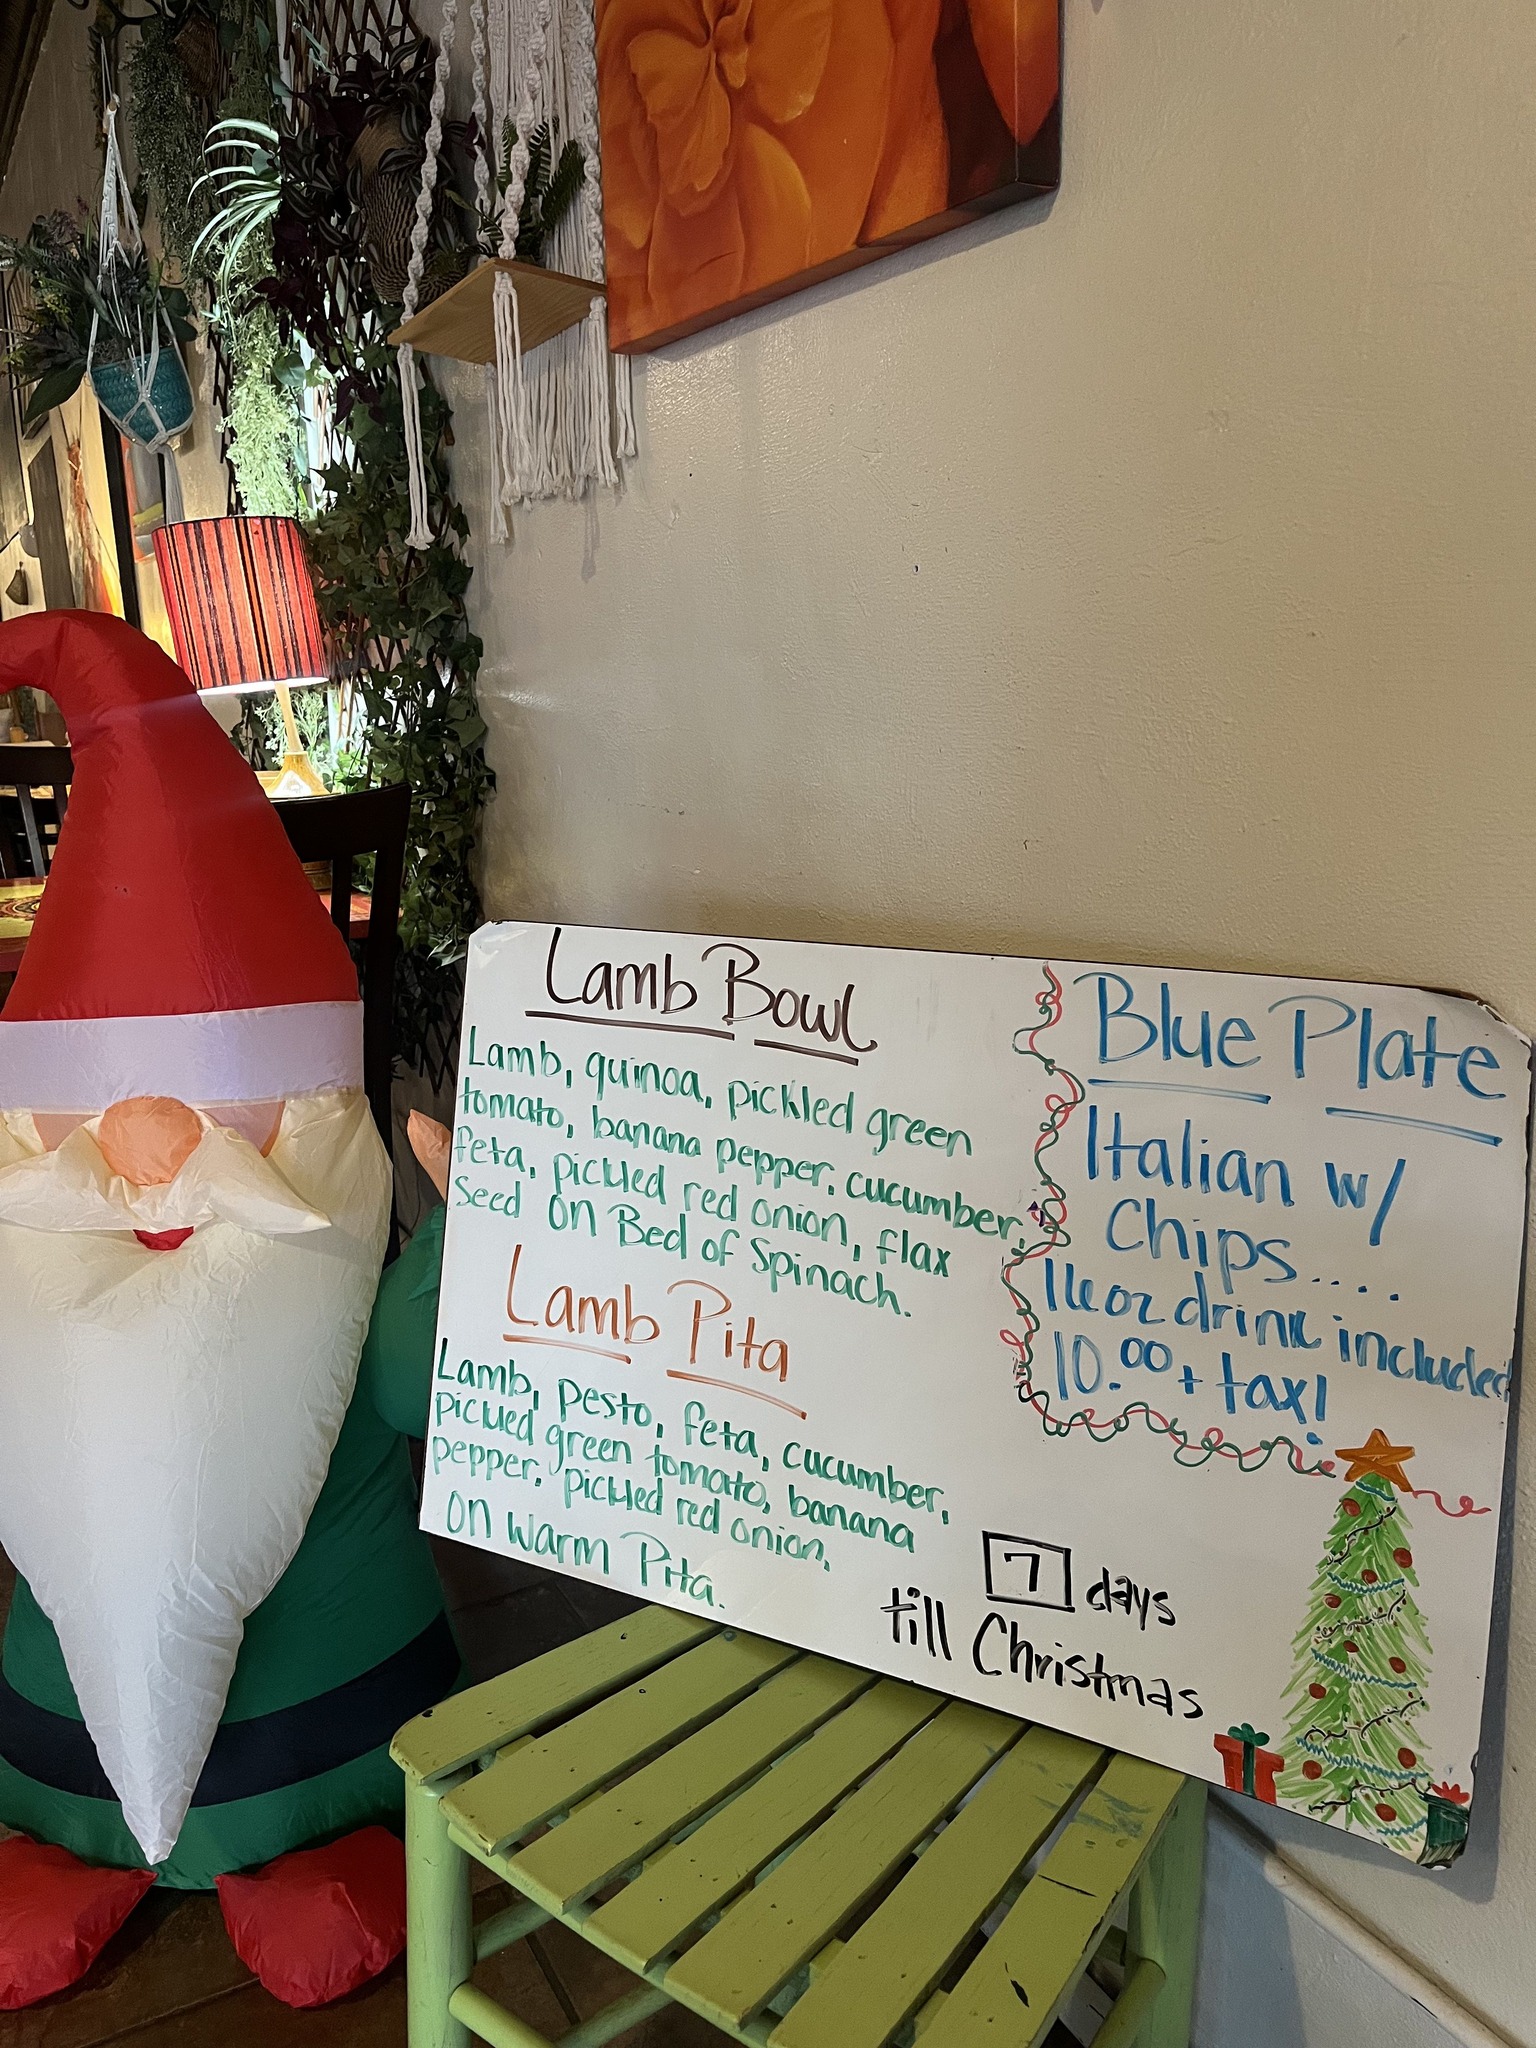 Lamb Bowl
Lamb, quinoa, pickled green
tomato, banana pepper, cucumber,
feta, pickled red onion, flax
seed on Bed of Spinach.
Lamb Pita
Lamb, pesto, feta, cucumber,
pickled green tomato, banana
pepper, pickled red onion,
on warm Pita.
Blue Plate
Italian w/
Chips....
16 oz drink included
10.00 + tax!
7 days
till Christmas